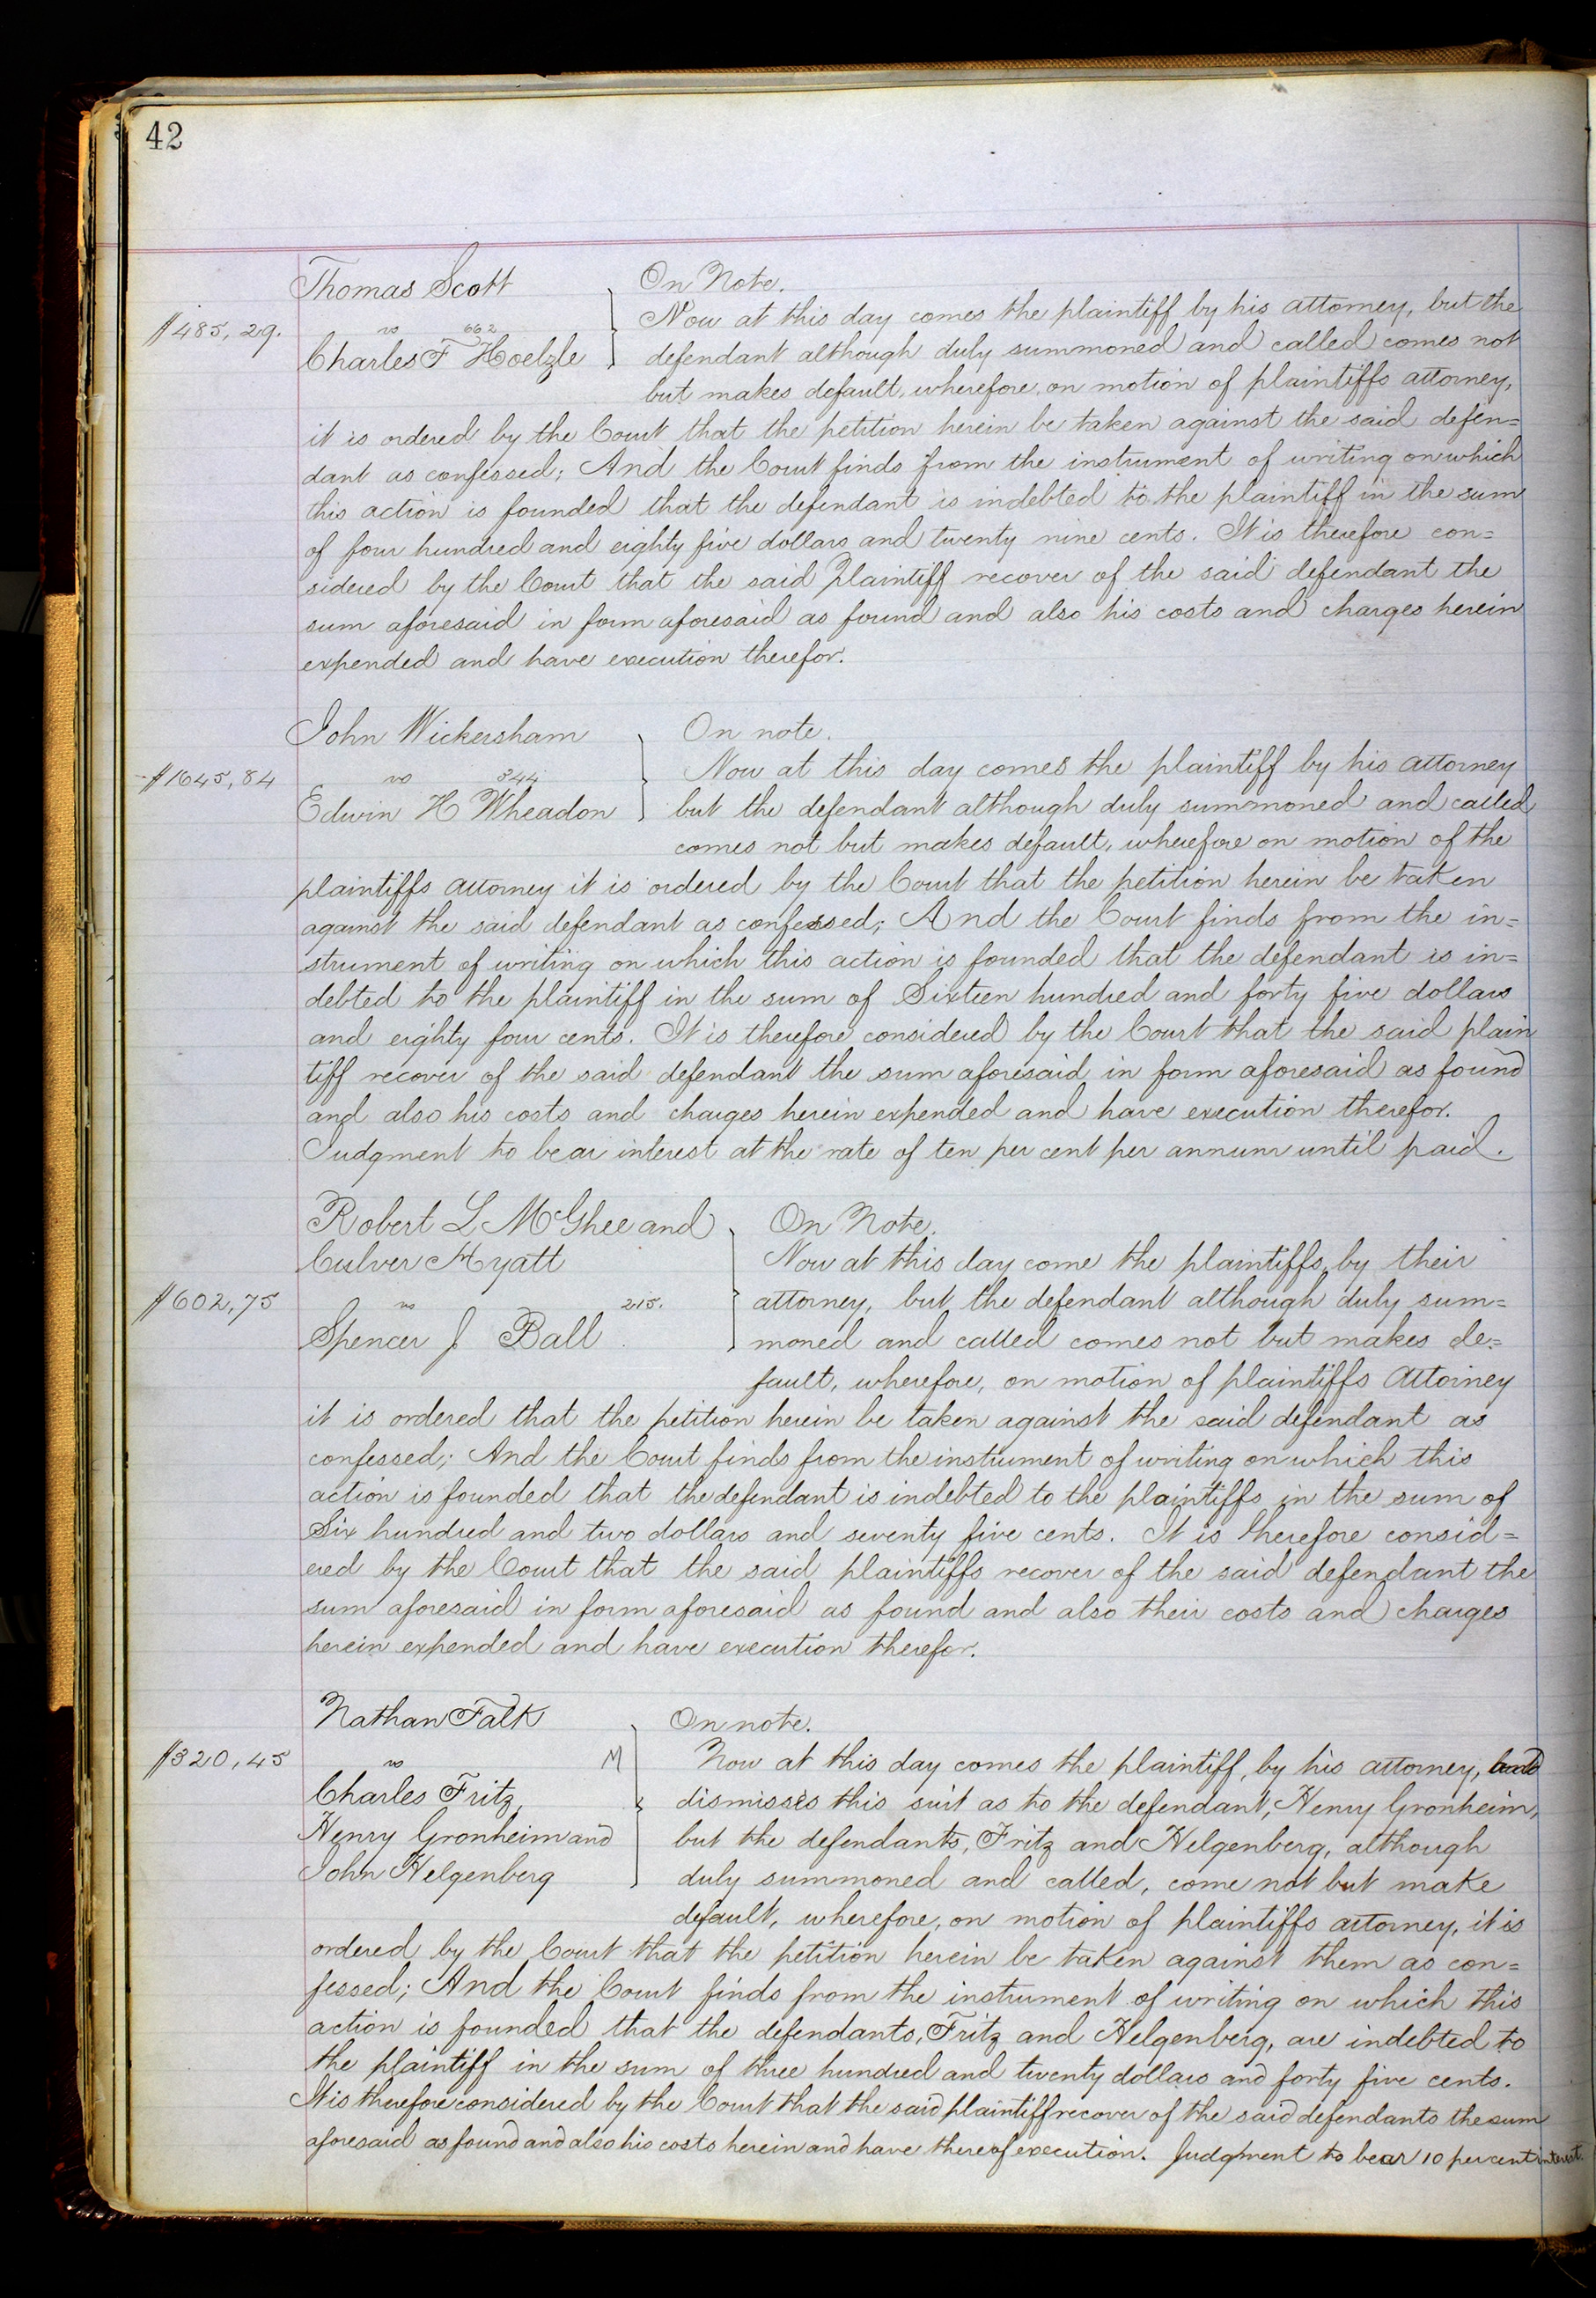 42
Thomas Scott
$485,29. vs 662
Charles F Hoelzle
On Note.
Now at this day comes the plaintiff by his attorney, but the
defendant although duly summoned and called comes not
but makes default, wherefore, on motion of plaintiffs attorney,
it is ordered by the Court that the petition herein be taken against the said defen=
dant as confessed; And the Court finds from the instrument of writing on which
this action is founded that the defendant is indebted to the plaintiff in the sum
of four hundred and eighty five dollars and twenty nine cents. It is therefore con=
sidered by the Court that the said plaintiff recover of the said defendant the
sum aforesaid in form aforesaid as found and also his costs and charges herein
expended and have execution therefor.
John Wickersham
$1645,84 vs 344
Edwin H Wheadon
On note.
Now at this day comes the plaintiff by his attorney
but the defendant although duly summoned and called
comes not but makes default, wherefore on motion of the
plaintiffs attorney it is ordered by the Court that the petition herein be taken
against the said defendant as confessed; And the Court finds from the in=
strument of writing on which this action is founded that the defendant is in=
debted to the plaintiff in the sum of Sixteen hundred and forty five dollars
and eighty four cents. It is therefore considered by the Court that the said plain
tiff recover of the said defendant the sum aforesaid in form aforesaid as found
and also his costs and charges herein expended and have execution therefor.
Judgment to bear interest at the rate of ten per cent per annum until paid.
Robert L McGhee and
Culver Hyatt
$602,75 vs 215.
Spencer J Ball
On Note.
Now at this day come the plaintiffs, by their
attorney, but the defendant although duly sum=
moned and called comes not but makes de=
fault, wherefore, on motion of plaintiffs Attorney
it is ordered that the petition herein be taken against the said defendant as
confessed; And the Court finds from the instrument of writing on which this
action is founded that the defendant is indebted to the plaintiffs in the sum of
Six hundred and two dollars and seventy five cents. It is therefore consid=
ered by the Court that the said plaintiffs recover of the said defendant the
sum aforesaid in form aforesaid as found and also their costs and charges
herein expended and have execution therefor.
Nathan Falk
$320,45 vs M
Charles Fritz,
Henry Gronheim and
John Helgenberg
On note.
Now at this day comes the plaintiff, by his attorney, and
dismisses this suit as to the defendant, Henry Gronheim,
but the defendants, Fritz and Helgenberg, although
duly summoned and called, come not but make
default, wherefore, on motion of plaintiffs attorney, it is
ordered by the Court that the petition herein be taken against them as con=
fessed; And the Court finds from the instrument of writing on which this
action is founded that the defendants, Fritz and Helgenberg, are indebted to
the plaintiff in the sum of three hundred and twenty dollars and forty five cents.
It is therefore considered by the Court that the said plaintiff recover of the said defendants the sum
aforesaid as found and also his costs herein and have thereof execution. Judgment to bear 10 per cent interest.